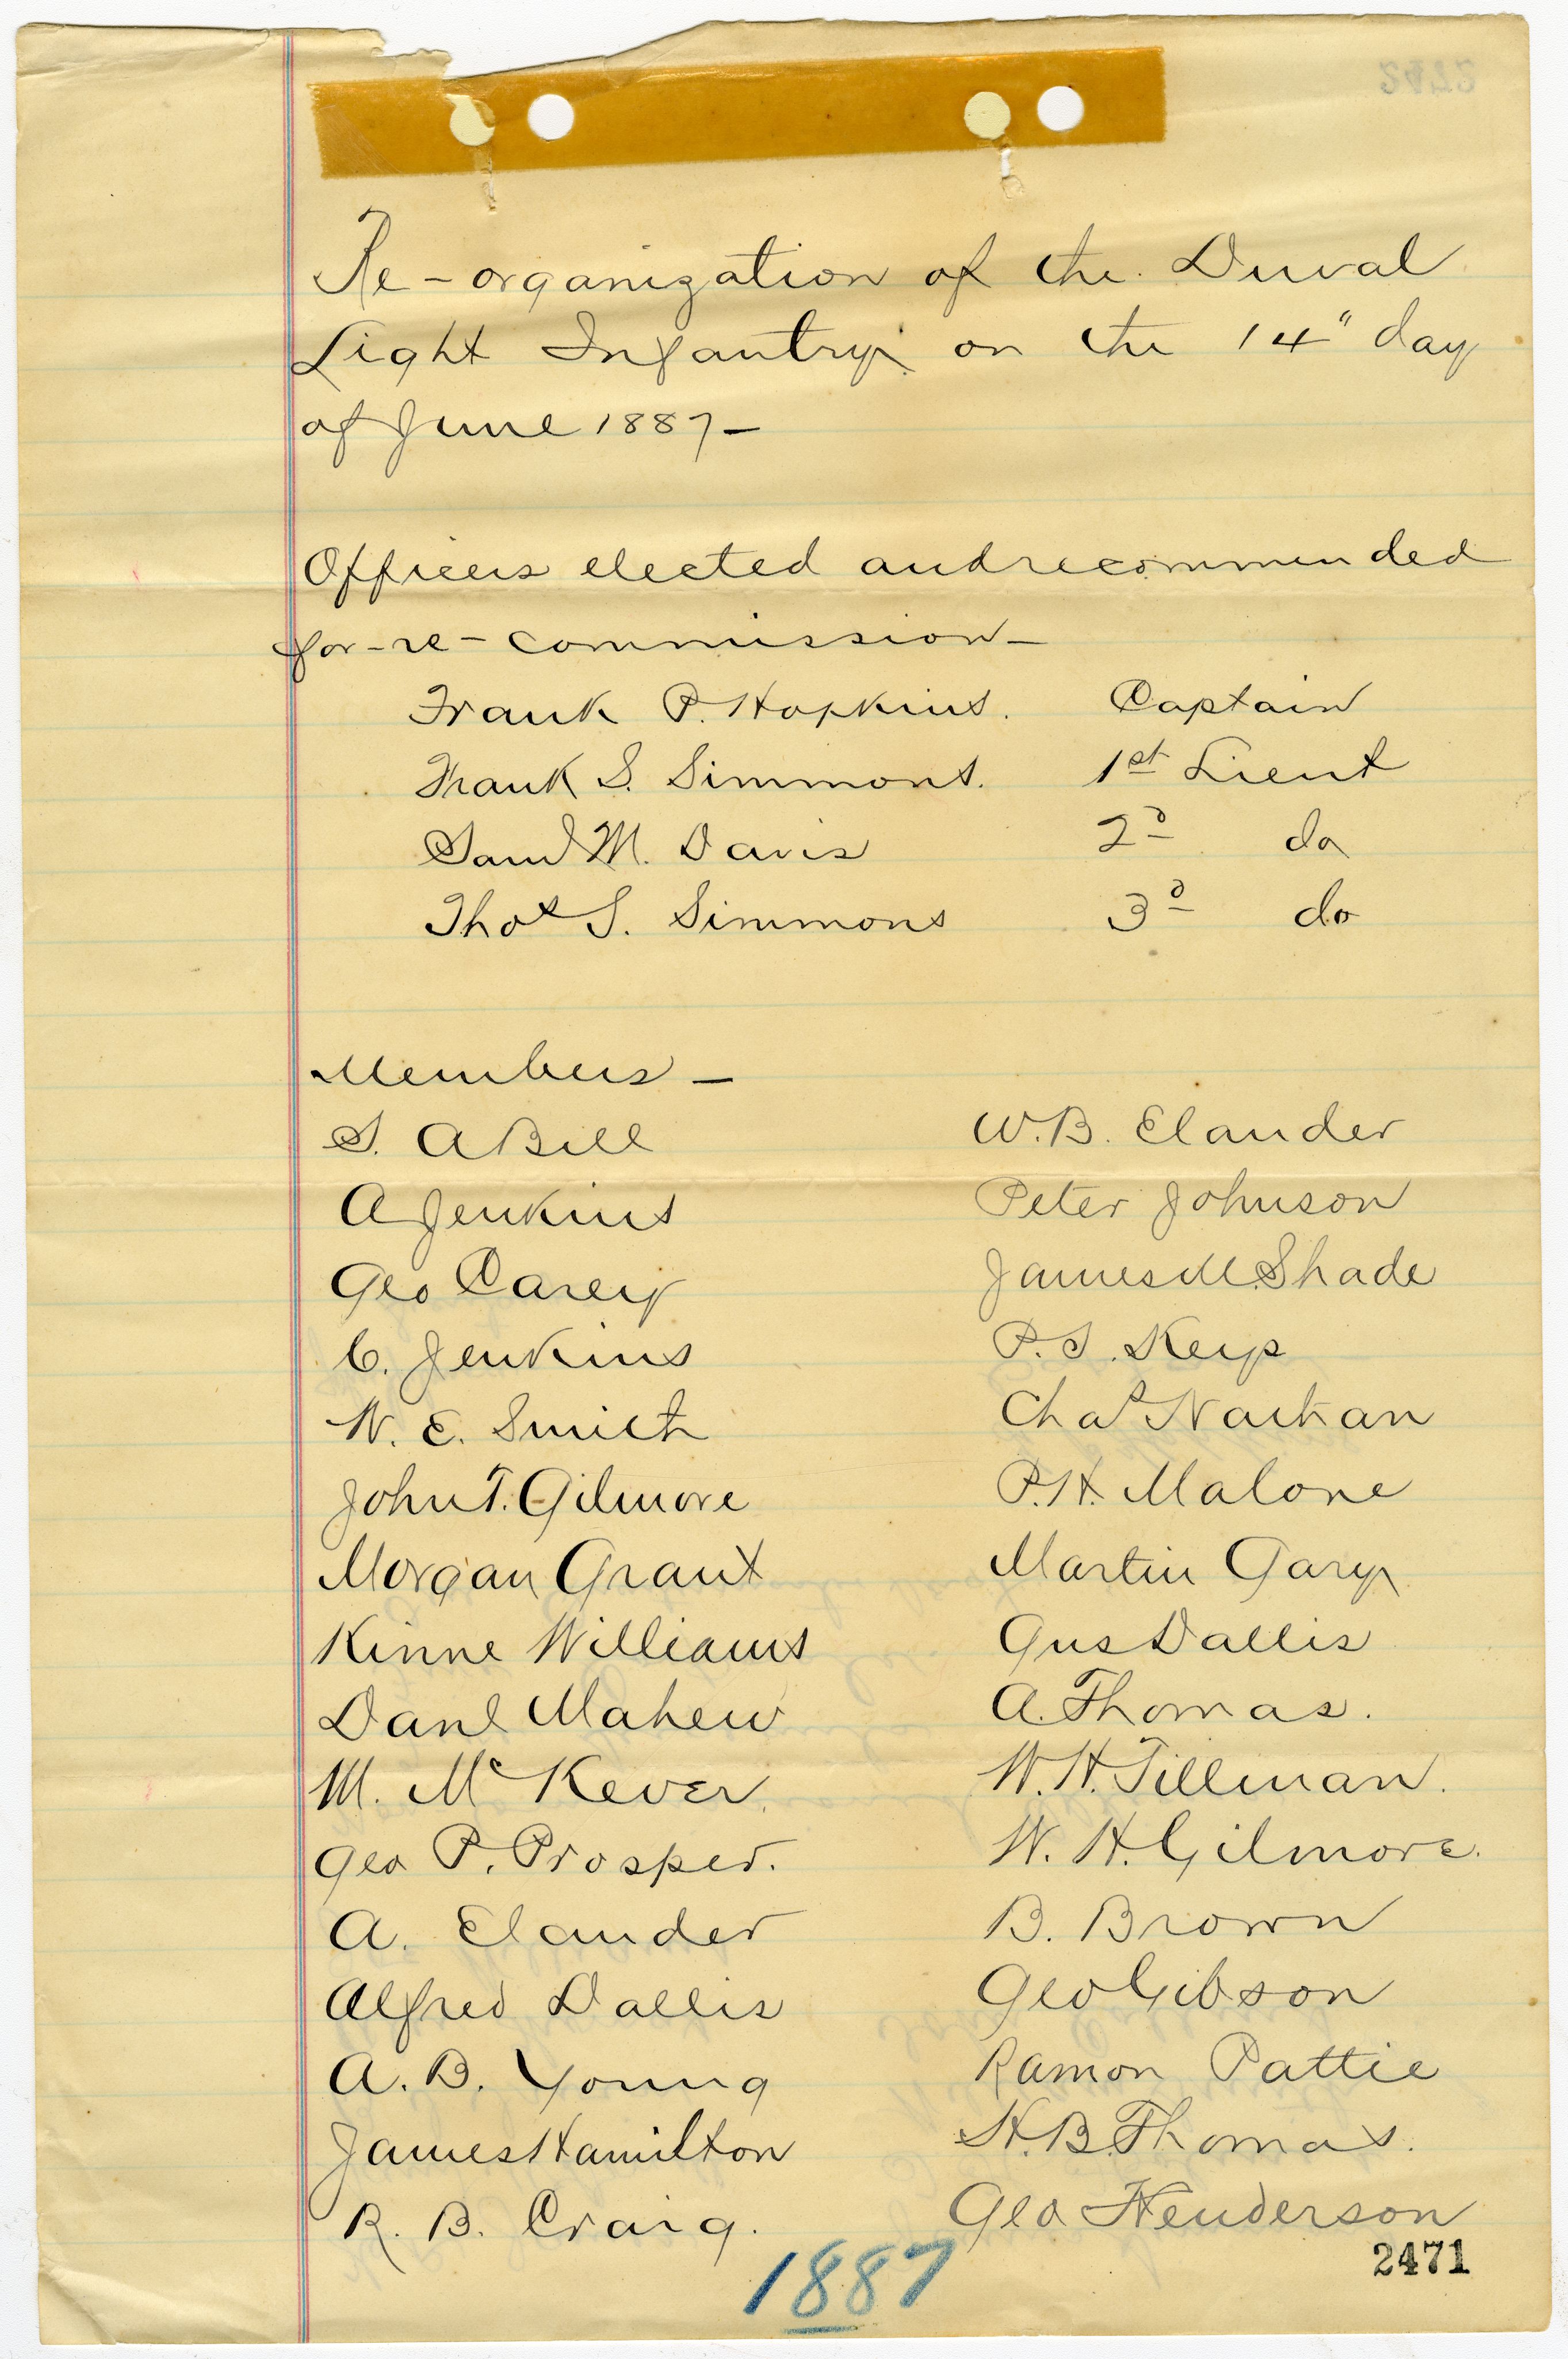 Re-organization of the Duval
Light Infantry on the 14" day
of June 1887-
Officers elected and recommended
for-re-commission-
Frank P. Hopkins. Captain
Frank S. Simmons. 1st Lieut
Saml M. Davis 2d do
Thos S. Simmons 3d do
Members -
S. A Bill W. B. Elander
A Jenkins Peter Johnson
Geo Carey James M. Shade
C. Jenkins P. S. Keys
W. E. Smith Chas Nathan
John T. Gilmore P. H. Malone
Morgan Grant Martin Gary
Kinne Williams Gus Dallis
Danl Mahew A. Thomas.
M. McKever. W. H. Tillman.
Geo P. Prosper. W. H. Gilmore.
A. Elander B. Brown
Alfred Dallis Geo Gibson
A. B. Young Ramon Pattie
James Hamilton H. B. Thomas.
R. B. Craig. Geo Henderson
2471
1887